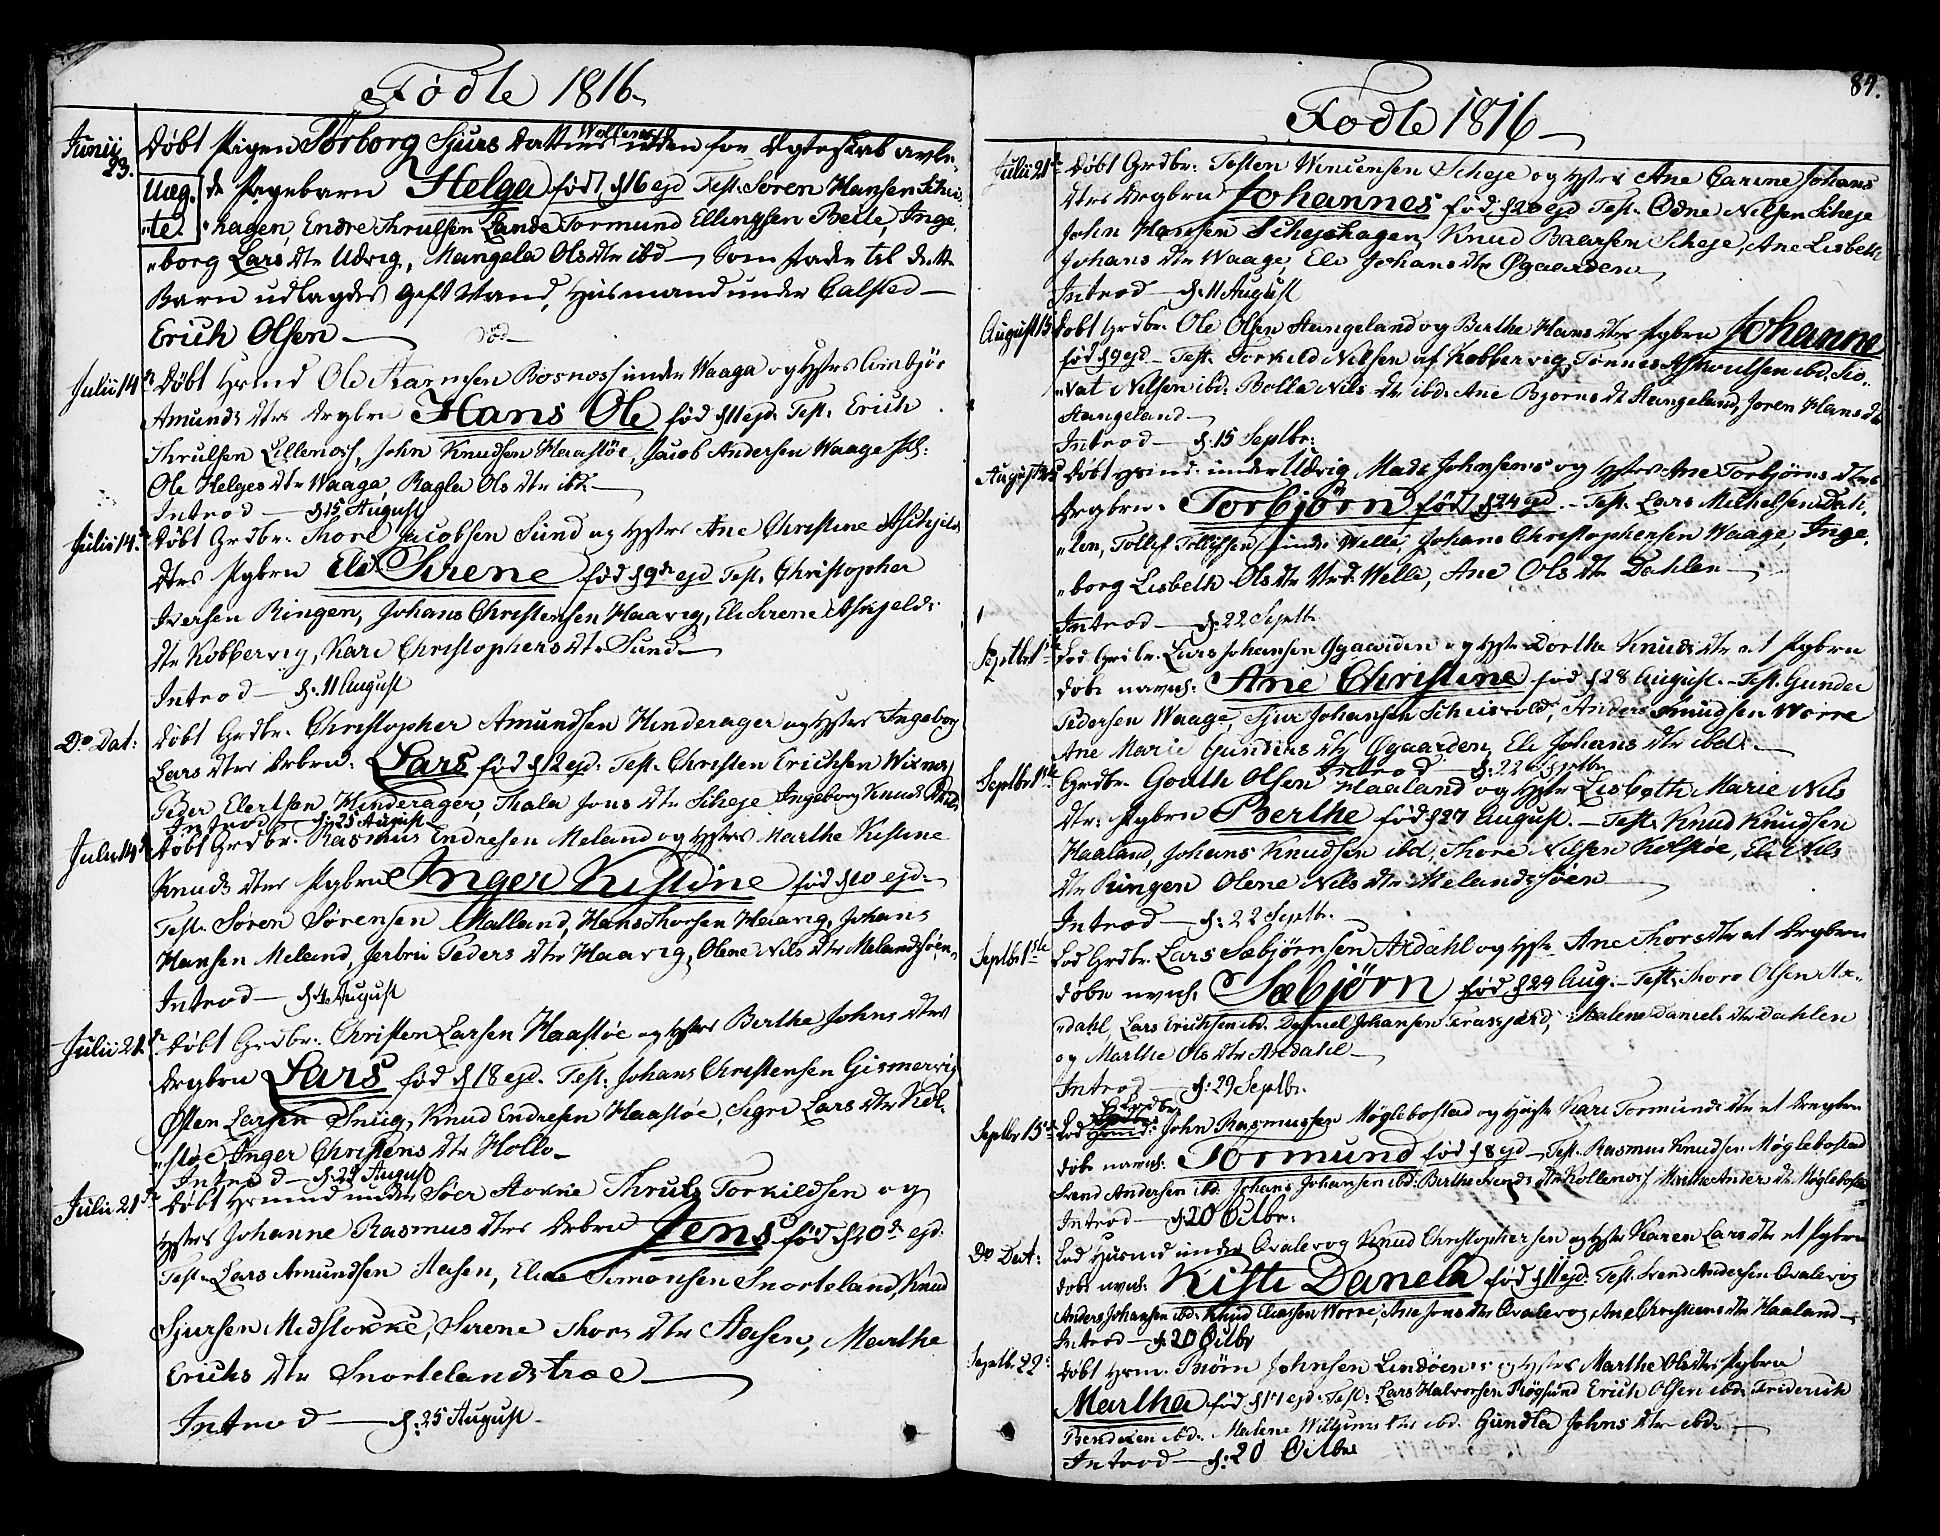 Födte 1816
Junii 23. Döbt Pigen Torborg Sjurs Datters uden for Ægteskab avle-
Uæg- de Pigebarn Helga föd d. 16 ejd Test. Sören Hansen
te. hagen, Endre Thrulsen Lande Tormund Ellingsen Velle, Inge-
borg Lars dtr Udvig, Mangela Ols dtr ibd — Som fader til dette
Barn udlagdes gift Mand, Huusmand under Calsted —
Erich Olsen —
Julii 14. Döbt Hsmd Ole Bosnæs under Waaga og Hstrs
Amunds dtrs Drgbrn Hans Ole föd d. 11 ejd. Test. Erich
Thrulsen Lillenæs, John Knudsen Haastöe, Jacob Andersen Waage
Ole Helges dtr Waaga, Ragla Ols dtr ibd. —
Introd — d. 15 August
Julii 14. Döbt Grdbr. Thore Jacobsen Sund og Hstrs Ane Christine
dtrs Pgbrn Eli Serene föd d. 9de ejd Test. Christopher
Iversen Ringen, Johans Christensen Haavig, Eli Serene Askjelds
dtr Kobbervig, Kari Christophers dtr Sund —
Introd — d. 11 August
Do Dat: Döbt Grdbr. Christopher Amundsen Hinderager og Hstrs Ingeborg
Lars dtrs Drbrn. Lars föd d. 12 ejd. Test. Christen Erichsen
Peder Elertsen Hinderager, Thala Jons dtr Scheje Ingeborg Knuds
Introd — d. 25 August
Julii 14. Döbt Grdbr. Rasmus Endresen Meland og Hstrs Marthe Kistine
Knuds dtrs Pgbrn Inger Kistine föd d. 10 ejd.
Test. Sören Sörensen Malland, Hans Thorsen Haavig, Johans
Hansen Meland, Jerbru Peders dtr Haavig, Olene Nils dtr Melandsöen
Introd — d. 4 August
Julii 21. Döbt Grdbr. Christen Larsen Haastöe og Hstrs Berthe Johns dtrs
Drgbrn Lars föd d. 18 ejd. Test. Johans Christensen Gismervig
Östen Larsen Sniig, Knud Endresen Haastöe, Segre Lars dtr Kol-
stöe, Inger Christens dtr Hollo —
Introd — d. 25 August
Julii 21. Döbt Hsmnd under Söer Stokke Thruls Torkildsen og
Hstrs Johanne Rasmus dtrs Drbrn Jens föd d. 20de ejd.
Test. Lars Amundsen Aasen, Elias Simonsen Snorteland, Knud
Sjursen Midstokke, Serene Thors dtr Aasen, Marthe
Erichs dtr Snortelandstræe —
Introd — d. 25 August —
84.
Födte 1816 —
Julii 21. Döbt Grdbr. Tosten Wincensen Scheje og Hstrs Ane Carine Johans
dtrs Drgbrn Johannes föd d. 20 ejd Test. Odne Nilsen Scheje
John Hansen Schejshagen, Knud Baarsen Scheje, Ane Lisbeth
Johans dtr Waage, Eli Johans dtr Øgaarden
Introd — d. 11 August
August 15 Döbt Grdbr. Ole Olsen Stangeland og Berthe Hans dtrs Pgbrn Johanne
föd d. 9 ejd — Test. Torkild Nilsen af Kobbervig, Tönnes Asboulsen ibd. Sio-
vat Nilsen ibd. Bolla Nils dtr ibd. Ane Bjorns dt Stangeland, Joren Hans dt
Stangeland —
Introd — d. 15 Septbr.
August 25 Döbt Hsmd. under Udvig, Mads Johnsens og Hstrs Ane Torbjörns dtrs
Drgbrn. Torbjörn föd d. 24 ejd. — Test. Lars Michelsen Dah-
len, Tollef Tollefsen under Welle, Johans Christophersen Waage, Inge-
borg Lisbeth Ols dtr Velle, Ane Ols dtr Dahlen —
Introd — d. 22 Septbr.
Septbr 1ste Lod Grdbr. Lars Johansen Øgaarden og Hstr Dorthe Knuds dtr et Pgbrn
döbe navnl. Ane Christine föd d. 28 August. — Test. Gunder
Pedersen Waage, Sjur Johansen, Anders Knudsen Worre
Ane Marie Gunders dtr Øgaarden, Eli Johans dtr ibd. —
Introd — d. 22 Septbr
Septbr 1ste Grdbr. Gouth Olsen Haaland og Hstr Lisbeth Marie Nils
dtr. Pgbrn Berthe föd d. 27 August. — Test. Knud Knudsen
Haaland, Johans Knudsen ibd, Thore Nilsen Kolstöe, Eli Nils
dtr Ringen Olene Nils dtr Melandsöen —
Introd — d. 22 Septbr.
Septbr 1ste Lod Grdbr. Lars Sæbjörnsen Ardahl og Hstr Ane Thors dtr et Drgbrn
döbe nvnl. Sæbjörn föd d. 29 Aug. — Test. Thore Olsen Ar-
dahl, Lars Erichsen ibd. Daniel Johansen, Malene Daniels dtr Dahlen
og Marthe Ols dtr Ardahl —
Introd — d. 29 Septbr.
Septbr 15 Lod Grdbr John Rasmussen Möglebostad og Hstr Kari Tormunds dtr et Drgbrn
döbe navnl. Tormund föd d. 8 ejd — Test. Rasmus Knudsen Möglebostad
Svend Andersen ibd. Johans Johansen ibd. Berthe Svends dtr Kollenæs Marthe Anders dtr Möglebostad
Introd — d. 20 Octbr.
Do Dat: Lod Husmd under Qvalevog Knud Christophersen og Hstr Karen Lars dtr et Pgbrn
döbe nvnl. Kisti Danela föd d. 11 ejd. Test. Svend Andersen Qvalevog
Anders Johansen ibd. Knud Eliassen Worre, Ane Jons dtr Qvalevog, Ane Christens dtr Haaland —
Introd — d. 20 Octbr
Septbr. 22. Döbt Hsm. Biörn Johnsen Lindöens og Hstrs Marthe Ols dtrs Pgbrn
Martha föd d. 17 ejd. Test. Lars Halvorsen Rögsund Erich Olsen ibd. Friderich
Bendixen ibd. Malene Willums dtr ibd. Gundla Johns dtr ibd. —
Introd — d. 20 Octbr